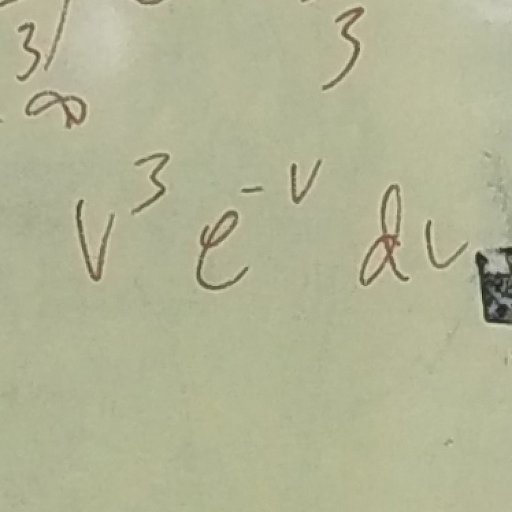 3/ 3
∞
V³ e^{-v} dv